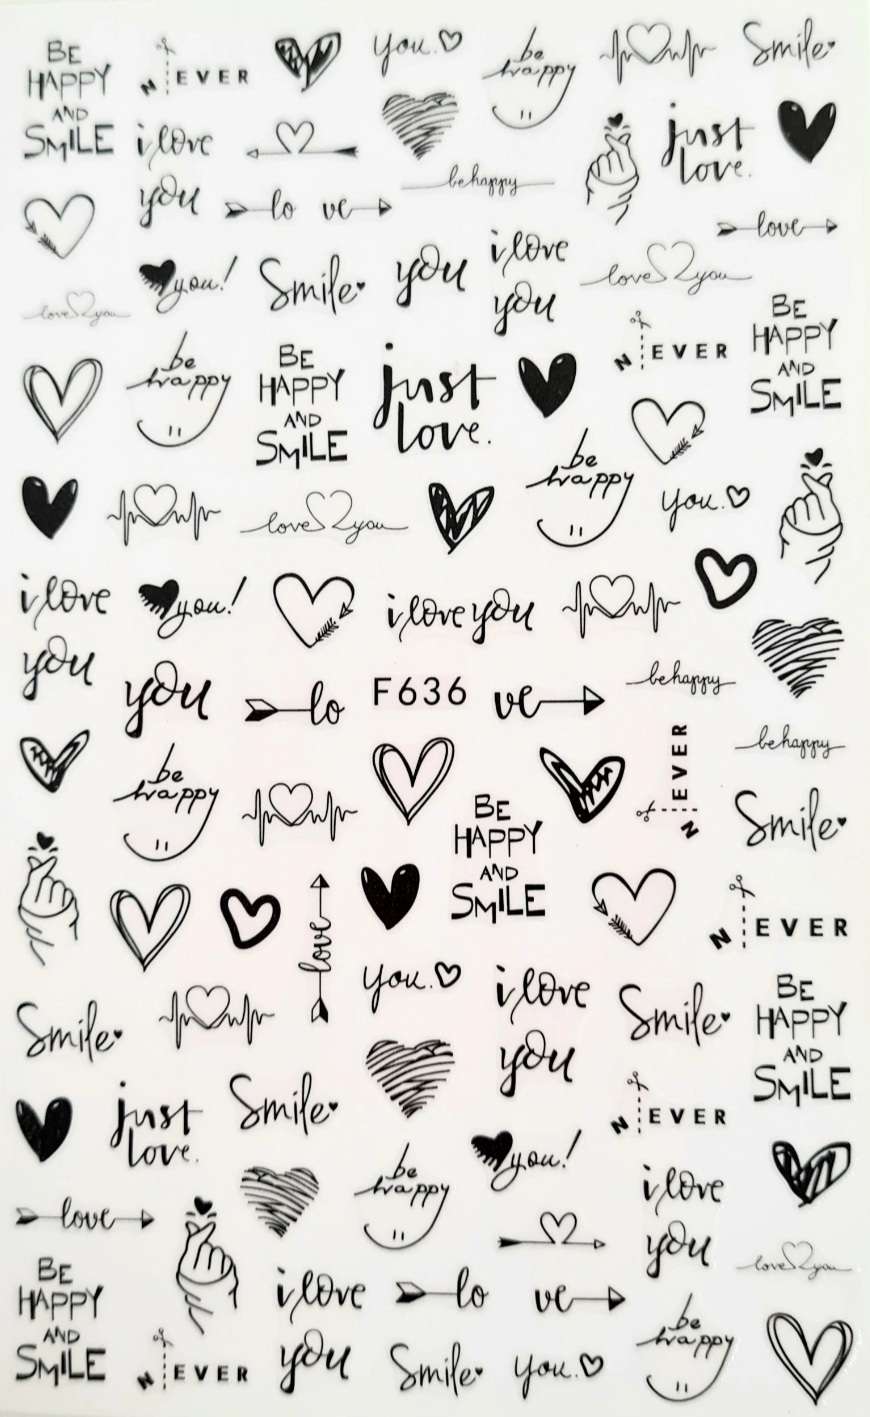 BE
HAPPY
AND
SMILE
N EVER
you.
be
happy
Smile
i love
you
just
love.
be happy
lo ve
love
you!
Smile
you
i love
you
love you
love you
N EVER
BE
HAPPY
AND
SMILE
be
happy
BE
HAPPY
AND
SMILE
just
love.
be
happy
you.
love you
i love
you
you!
i love you
you
lo
F636
ve
be happy
be happy
N EVER
be
happy
BE
HAPPY
AND
SMILE
Smile
love
N EVER
you.
i love
you
Smile
BE
HAPPY
AND
SMILE
Smile
just
love.
Smile
N EVER
you!
be
happy
i love
you
love
love you
BE
HAPPY
AND
SMILE
i love
you
lo ve
be
happy
N EVER
Smile
you.